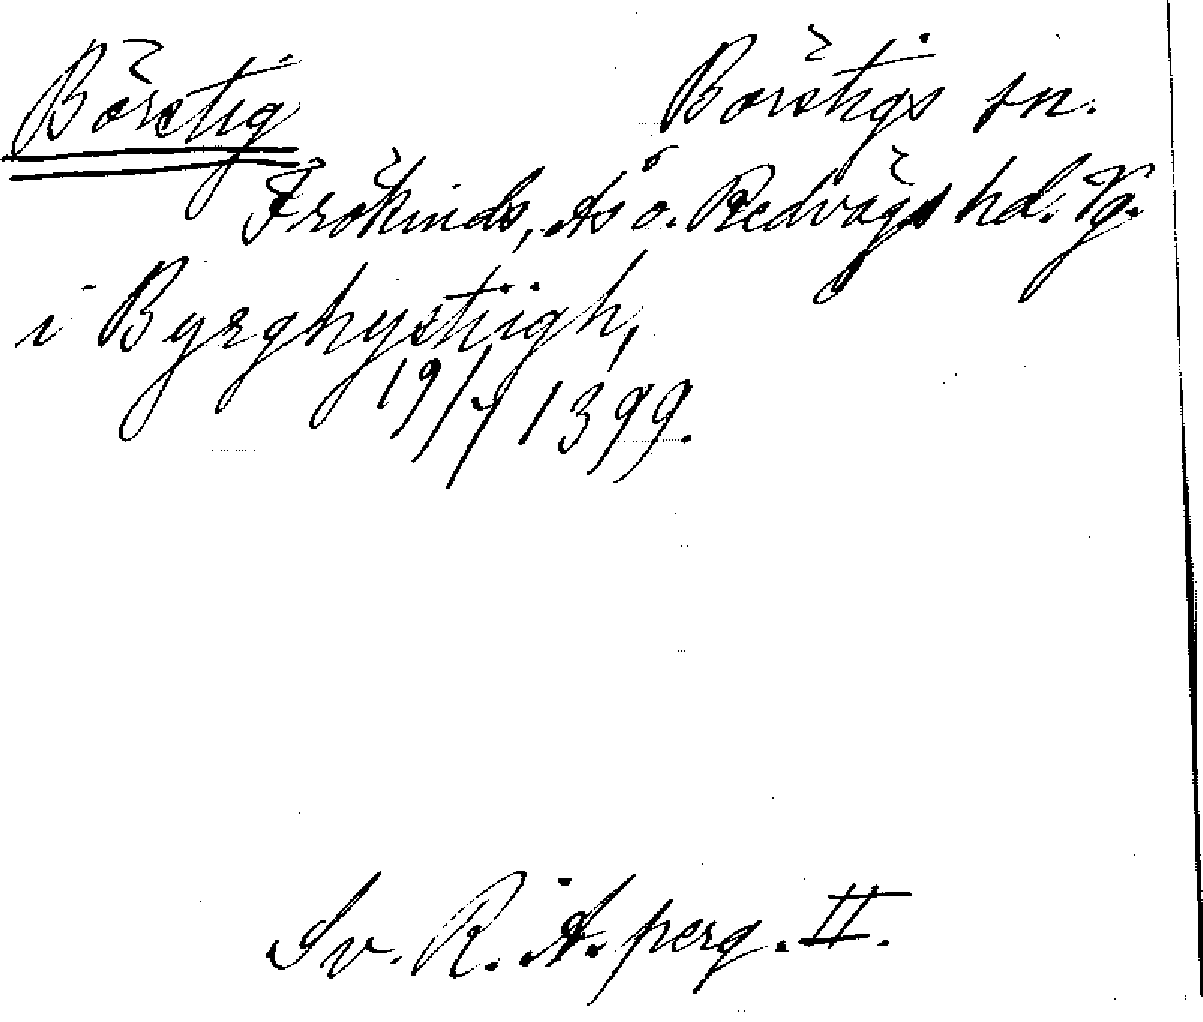 Börstig Börstigs sn.
Frökinds, Ås o. Redvägs hd. Vg.
i Byrghystiigh,
19/7 1399.
Sv. R. A. perg. II.